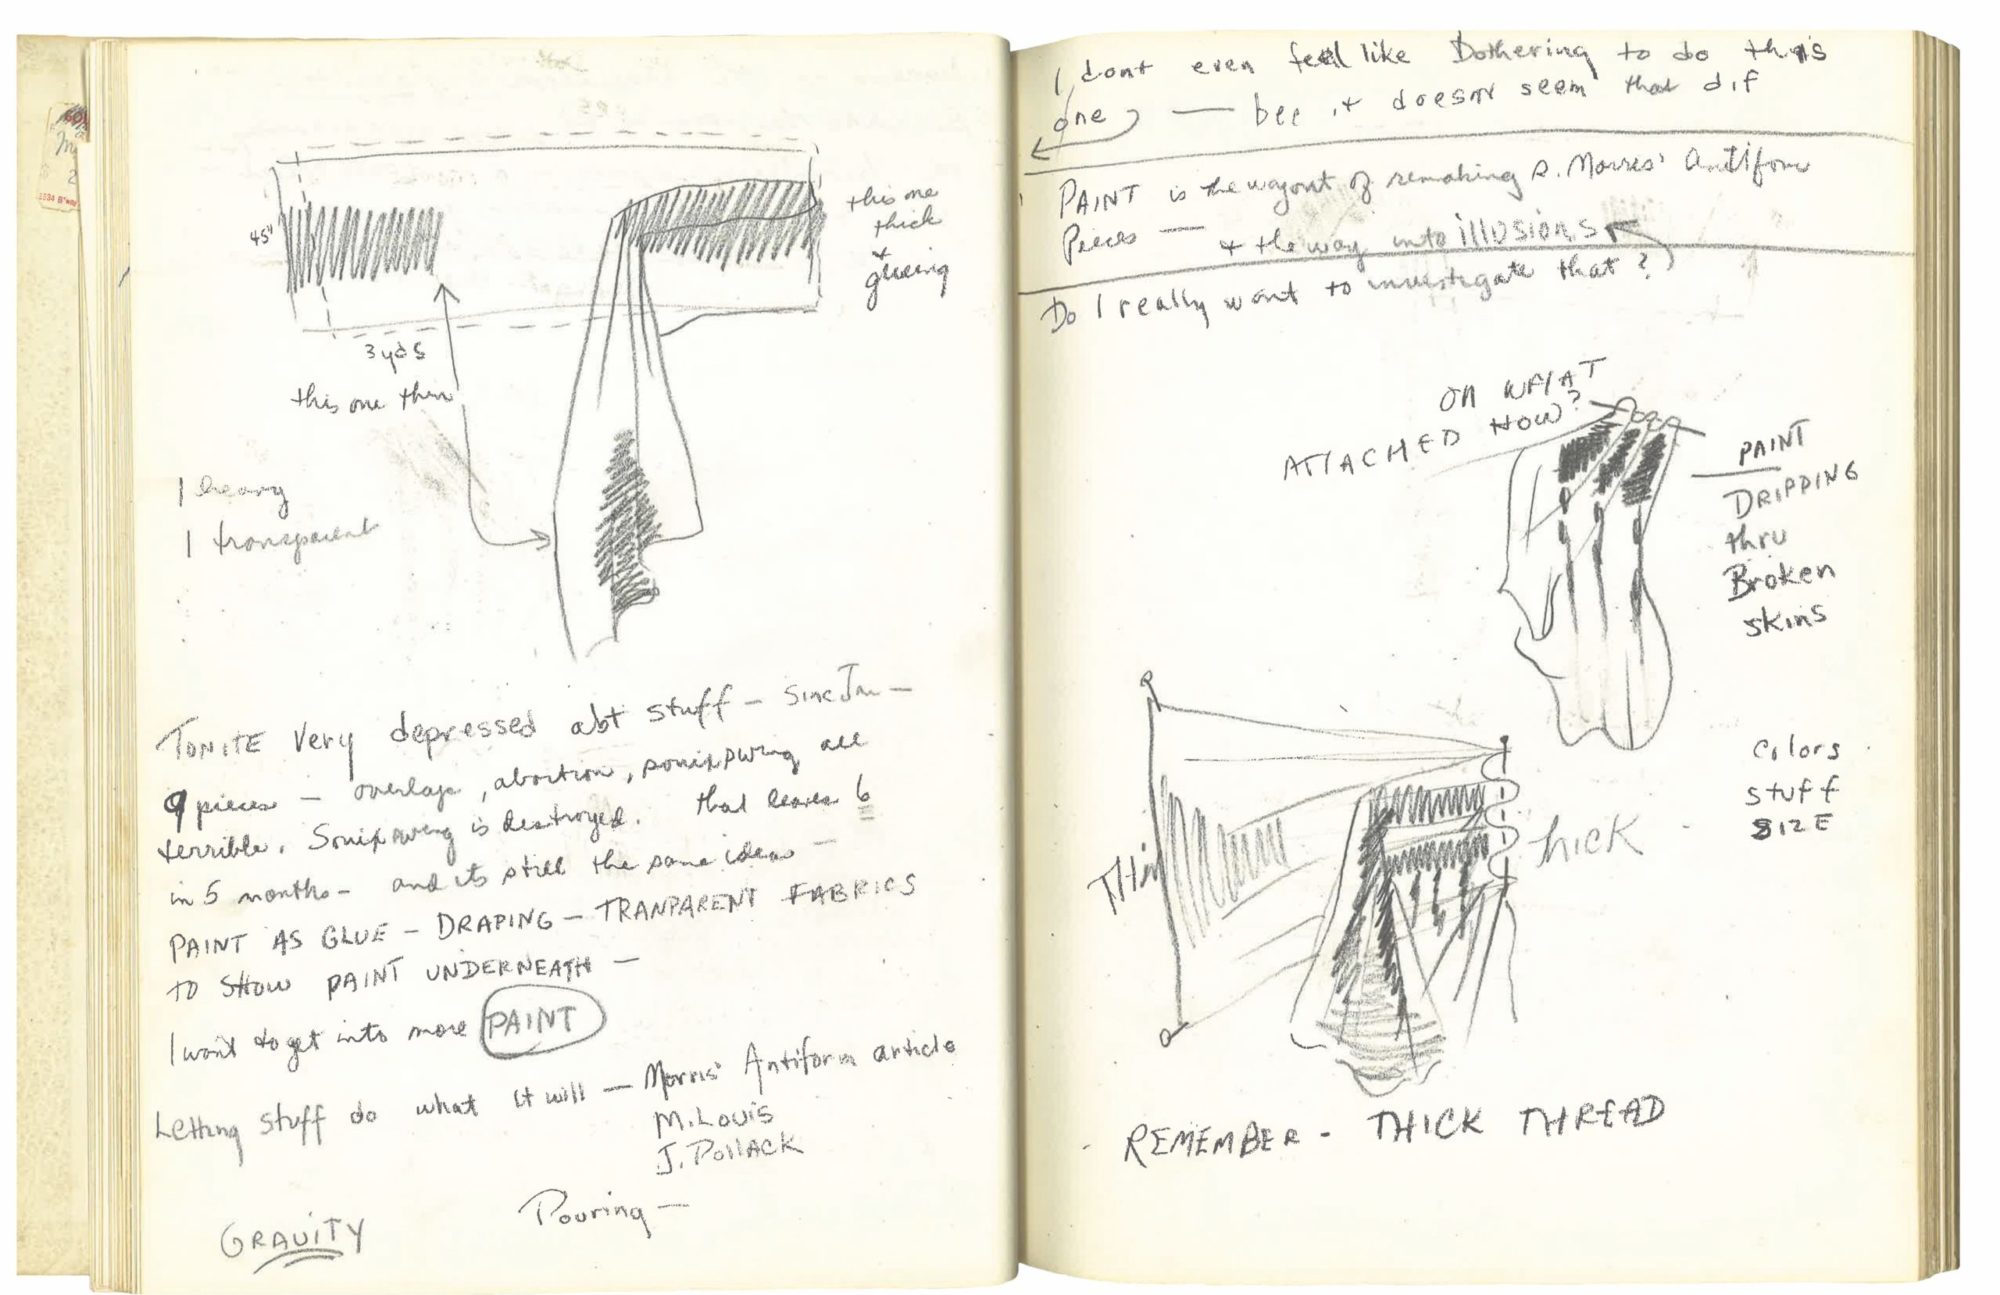 45"
3 yds
this one
thick
+
glueing
this one thin
1 heavy
1 transparent
TONITE Very depressed abt stuff — since Jan —
9 pieces — overlap, abortion, all
terrible. is destroyed. that leaves 6
in 5 months — and its still the same idea —
PAINT AS GLUE — DRAPING — TRANPARENT FABRICS
TO SHOW PAINT UNDERNEATH —
I want to get into more PAINT
Letting stuff do what it will — Morris' Antiform article
M. Louis
J. Pollack
Pouring —
GRAVITY
I dont even feel like Bothering to do this
one — bec it doesnt seem that dif
PAINT is the wayout of remaking R. Morris' Antiform
Pieces — + the way into illusions
Do I really want to investigate that?
ON WHAT
ATTACHED HOW?
PAINT
DRIPPING
thru
Broken
skins
colors
stuff
SIZE
THin
THICK
REMEMBER - THICK THREAD